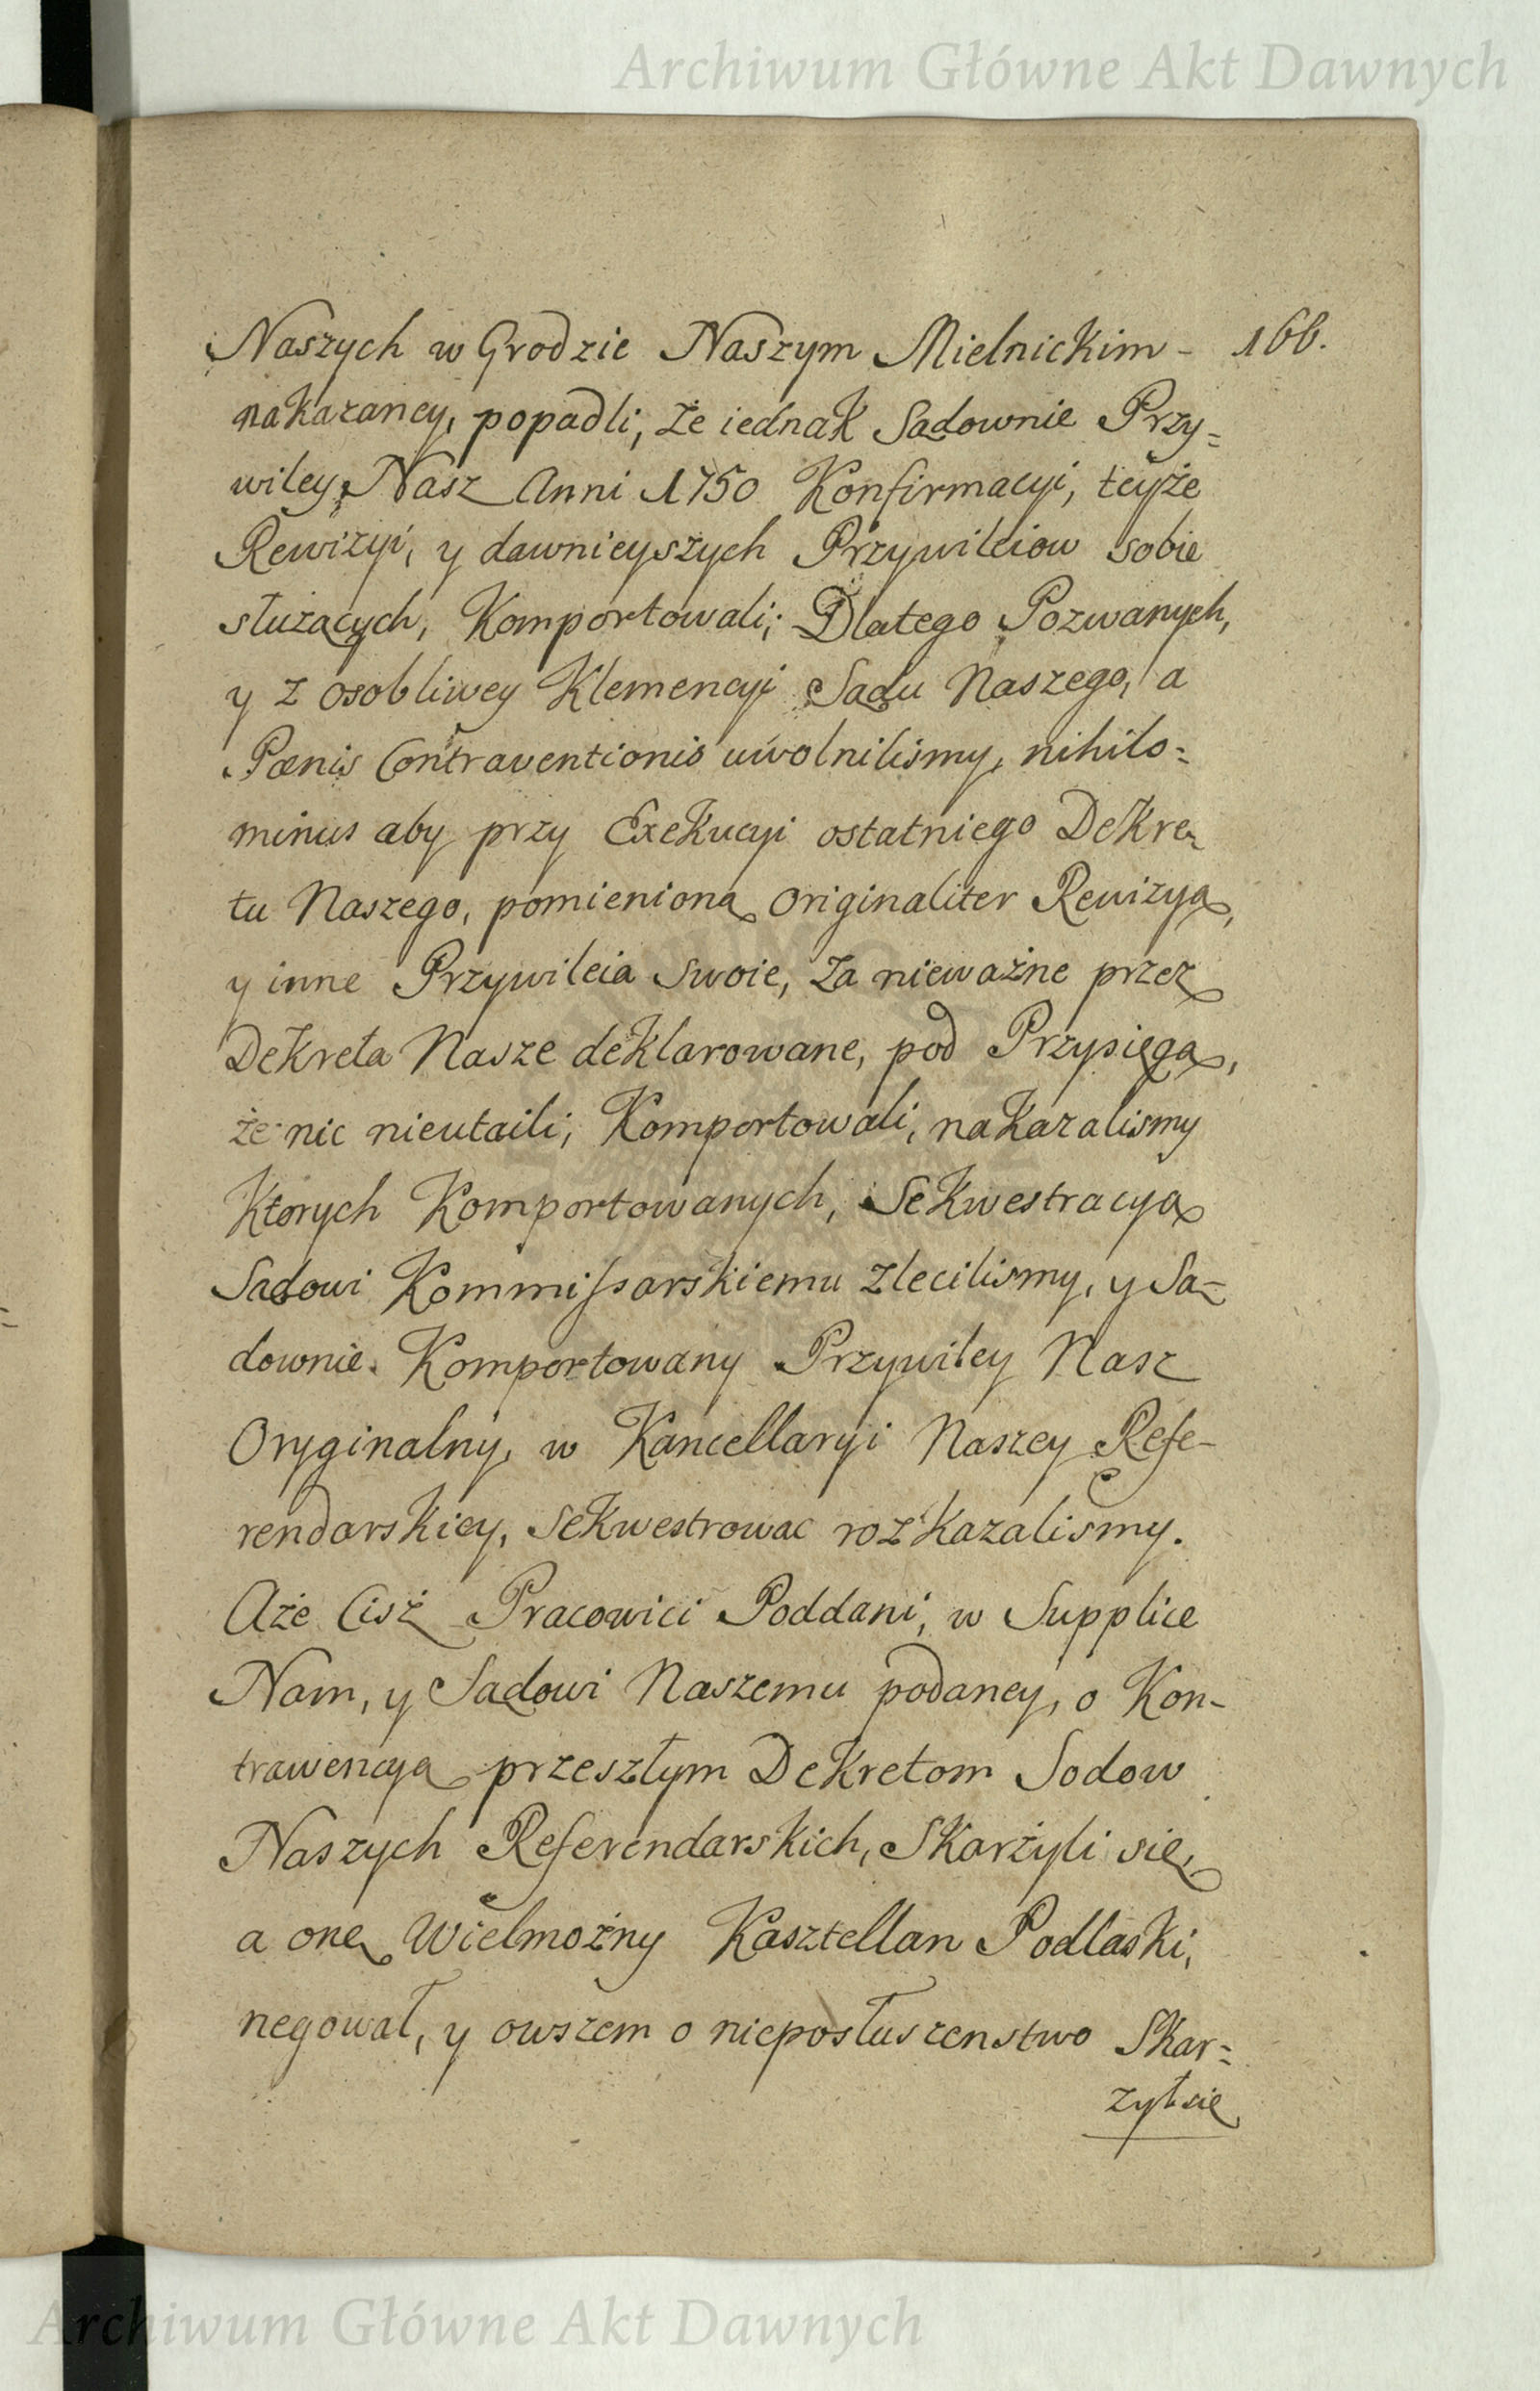 Archiwum Główne Akt Dawnych
Naszych w Grodzie Naszym Mielnickim - 166.
nakazaney, popadli, że iednak Sądownie Przy=
wiley Nasz Anni 1750 Konfirmacyi, teyże
Rewizyi, y dawnieyszych Przywileiow sobie
służących, Komportowali; Dlatego Pozwanych,
y z osobliwey Klemencyi Sądu Naszego, a
Pœnis Contraventionis uwolnilismy, nihilo=
minus aby przy Exekucyi ostatniego Dekre-
tu Naszego, pomienioną Originaliter Rewizyą,
y inne Przywileia swoie, za nieważne przez
Dekreta Nasze deklarowane, pod Przysięgą,
że nic nieutaili, Komportowali, nakazalismy
Ktorych Komportowanych, Sekwestracyą
Sądowi Kommissarskiemu zlecilismy, y Są=
downie Komportowany Przywiley Nasz
Oryginalny, w Kancellaryi Naszey Refe-
rendarskiey, sekwestrowac rozkazalismy.
Aże Cisż Pracowici Poddani, w Supplice
Nam, y Sądowi Naszemu podaney, o Kon-
trawencyą przeszłym Dekretom Sodow
Naszych Referendarskich, Skarżyli się,
a onę Wielmożny Kasztellan Podlaski,
negował, y owszem o nieposłuszenstwo Skar=
zył się
Archiwum Główne Akt Dawnych